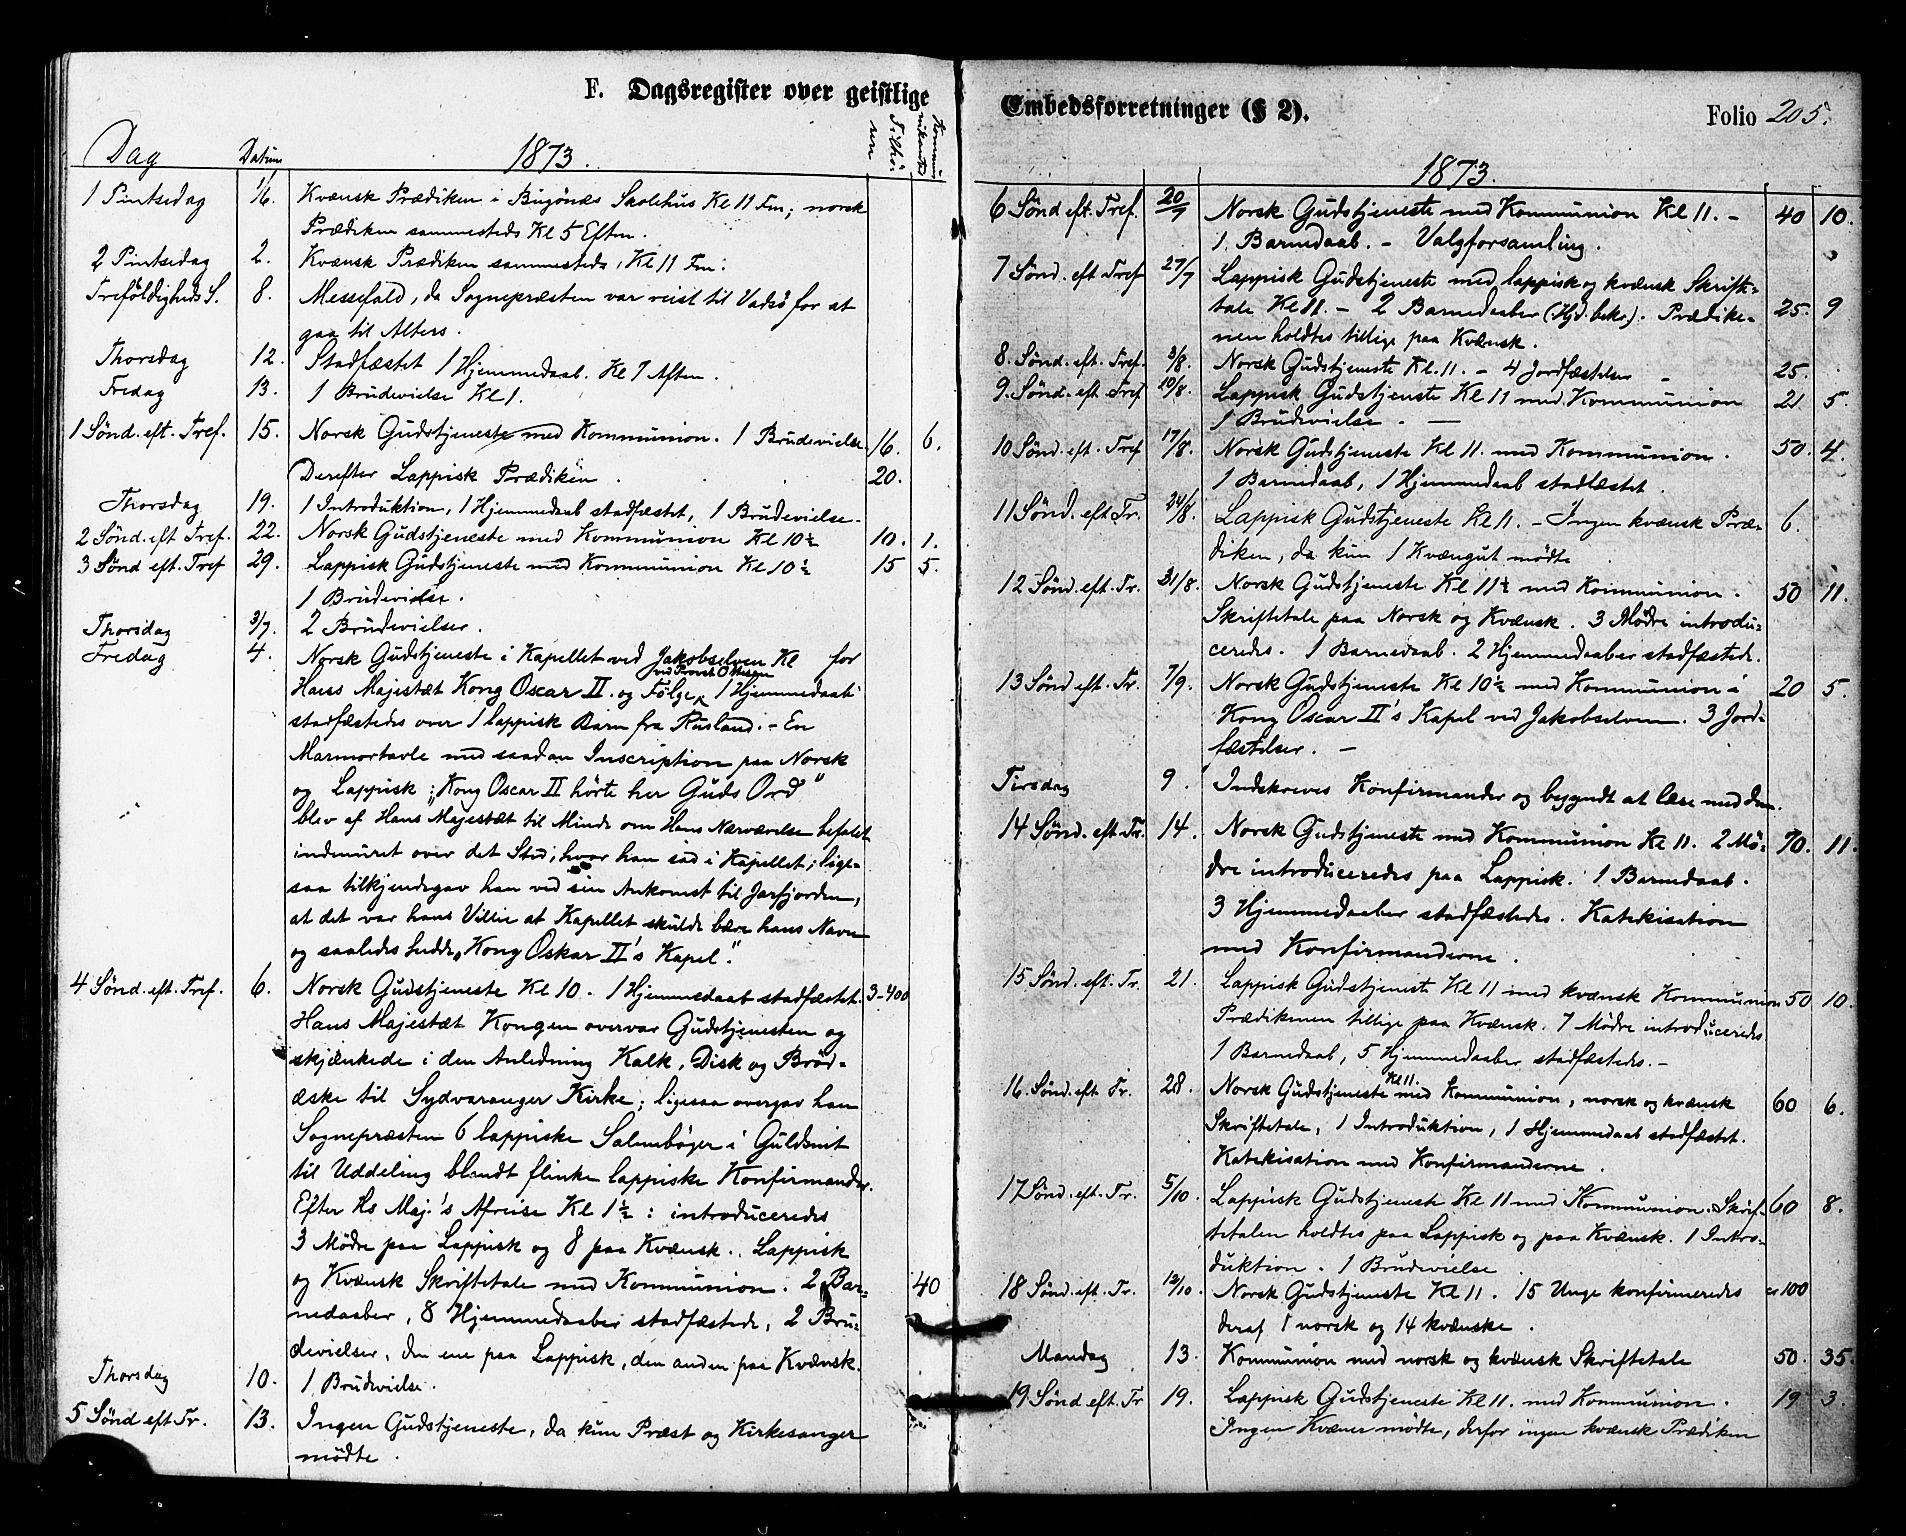 F. Dagsregister over geistlige
Dag Datum 1873. Tilhö-rere Kommunikanter
1 Pintsedag 1/6. Kvænsk Prædiken i Bugönæs Skolehus Kl 11 Fm; norsk
Prædiken sammesteds Kl 5 Eftm.
2 Pintsedag 2. Kvænsk Prædiken sammesteds, Kl 11 Fm.
Trefoldigheds S. 8. Messefald, da Sognepræsten var reist til Vadsö for at
gaa til Alters.
Thorsdag 12. Stadfæstet 1 Hjemmedaab. Kl 7 Aften.
Fredag 13. 1 Brudevielse Kl 1.
1 Sönd. eft. Tref. 15. Norsk Gudstjeneste med Kommunion. 1 Brudevielse 16. 6.
Derefter Lappisk Prædiken. 20.
Thorsdag 19. 1 Introduktion, 1 Hjemmedaab stadfæstet, 1 Brudevielse.
2 Sönd. eft Tref. 22. Norsk Gudstjeneste med Kommunion Kl 10½ 10. 1.
3 Sönd eft. Tref 29. Lappisk Gudstjeneste med Kommunion Kl 10½ 15 5.
1 Brudevielse.
Thorsdag 3/7. 2 Brudevielser.
Fredag 4. Norsk Gudstjeneste i Kapellet ved Jakobselven Kl for
Hans Majestæt Kong Oscar II. og Fölge, ved Provst Ottesen 1 Hjemmedaab
stadfæstedes over 1 lappisk Barn fra Rusland. – En
Marmortavle med saadan Inscription paa Norsk
og Lappisk: „Kong Oscar II hörte her Guds Ord"
blev af Hans Majestæt til Minde om Hans Nærværelse befalet
indmuret over det Sted, hvor han sad i Kapellet; lige-
saa tilkjendegav han ved sin Ankomst til Jarfjorden,
at det var hans Villie at Kapellet skulde bære hans Navn
og saaledes hedde „Kong Oskar II's Kapel."
4 Sönd. eft. Tref. 6. Norsk Gudstjeneste Kl 10. 1 Hjemmedaab stadfæstet. 3-400
Hans Majestæt Kongen overvar Gudstjenesten og
skjænkede i den Anledning Kalk, Disk og Bröd-
æske til Sydvaranger Kirke; ligesaa overgav han
Sognepræsten 6 lappiske Salmebøger i Guldsnit
til Uddeling blandt flinke lappiske Konfirmander.
Efter Hs Maj.'s Afreise Kl 1½: introduceredes
3 Mødre paa Lappisk og 8 paa Kvænsk. Lappisk
og Kvænsk Skriftetale med Kommunion. 2 Bar- 40
nedaaber, 8 Hjemmedaaber stadfæstede, 2 Bru-
devielser, den ene paa Lappisk, den anden paa Kvænsk.
Thorsdag 10. 1 Brudevielse.
5 Sönd eft Tr. 13. Ingen Gudstjeneste, da kun Præst og Kirkesanger
mödte.
Embedsforretninger (§ 2). Folio 205.
1873.
6 Sönd eft. Tref. 20/7 Norsk Gudstjeneste med Kommunion Kl 11. – 40 10.
1 Barnedaab. – Valgforsamling.
7 Sönd. eft Tref 27/7 Lappisk Gudstjeneste med lappisk og kvænsk Skrifte-
tale Kl 11. – 2 Barnedaaber (Hjd. bekr.). Prædike- 25. 9
nen holdtes tillige paa Kvænsk.
8. Sönd. eft. Tref. 3/8. Norsk Gudstjeneste Kl. 11. – 4 Jordfæstelser 25.
9. Sönd. eft. Tref 10/8. Lappisk Gudstjenste Kl 11 med Kommunion 21 5.
1 Brudevielse. –
10 Sönd. eft. Tref 17/8. Norsk Gudstjeneste Kl 11. med Kommunion. 50. 4.
1 Barnedaab, 1 Hjemmedaab stadfæstet.
11 Sönd. eft. Tr. 24/8. Lappisk Gudstjeneste Kl 11. – Ingen kvænsk Præ- 6.
diken, da kun 1 Kvængut mödte.
12 Sönd. eft. Tr. 31/8. Norsk Gudstjeneste Kl 11½ med Kommunion. 50 11.
Skriftetale paa Norsk og Kvænsk. 3 Mödre introdu-
ceredes. 1 Barnedaab. 2 Hjemmedaaber stadfæstede.
13 Sönd eft. Tr. 7/9. Norsk Gudstjeneste Kl 10½ med Kommunion i 20 5.
Kong Oscar II's Kapel ved Jakobselven. 3 Jord-
fæstelser. –
Tirsdag 9. Indskreves Konfirmander og begyndt at læse med dem.
14 Sönd. eft. Tr. 14. Norsk Gudstjeneste med Kommunion Kl 11. 2 Mö- 70. 11.
dre introduceredes paa Lappisk. 1 Barnedaab.
3 Hjemmedaaber stadfæstedes. Katekisation
med Konfirmanderne.
15 Sönd. eft. Tr. 21. Lappisk Gudstjeneste Kl 11 med kvænsk Kommunion 50 10.
Prædikenen tillige paa Kvænsk. 7 Mödre introduceredes
1 Barnedaab, 5 Hjemmedaaber stadfæstedes. –
16 Sönd. eft Tr. 28. Norsk Gudstjeneste Kl 11. med Kommunion, norsk og kvænsk 60 6.
Skriftetale, 1 Introduktion, 1 Hjemmedaab stadfæstet.
Katekisation med Konfirmanderne.
17 Sönd. eft. Tr. 5/10. Lappisk Gudstjeneste Kl 11 med Kommunion. Skrif- 60 8.
tetalen holdtes paa Lappisk og paa Kvænsk. 1 Intro-
duktion. 1 Brudevielse
18 Sönd. eft. Tr. 12/10. Norsk Gudstjeneste Kl 11. 15 Unge konfirmeredes ca 100
deraf 1 norsk og 14 kvænske.
Mandag 13. Kommunion med norsk og kvænsk Skriftetale 50. 35.
19 Sönd eft. Tr 19. Lappisk Gudstjeneste Kl 11. med Kommunion. 19 3.
Ingen Kvæner mödte, derfor ingen kvænsk Prædiken